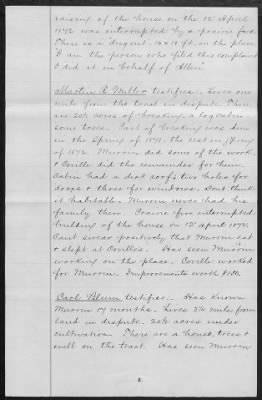 raising of the house on the 12th April
1872 was interrupted by a prairie fire.
There is a "dugout" 14 x 18 ft. on the place.
I am the person who filed this complaint
I did it in behalf of Allen.
Martin R. Miller testifies. Lives one
mile from the tract in dispute. There
are 20½ acres of breaking, a log cabin
some trees. Part of breaking was done
in the Spring of 1871. the rest in
of 1872. Murrin did some of the work
& Coville did the remainder for him.
Cabin had a dirt roof & two holes for
doors & three for windows. Don't think
it habitable. Murrin never had his
family there. Prairie fire interrupted
building of the house on 12th April 1872.
Can't swear positively that Murrin eat
& slept at Coville's. Has seen Murrin
working on the place. Coville worked
for Murrin. Improvements worth $100.
Carl Blum testifies. Has known
Murrin 17 months. Lives 3¼ miles from
land in dispute. 20½ acres under
cultivation. There are a house, trees &
well on the tract. Has seen Murrin